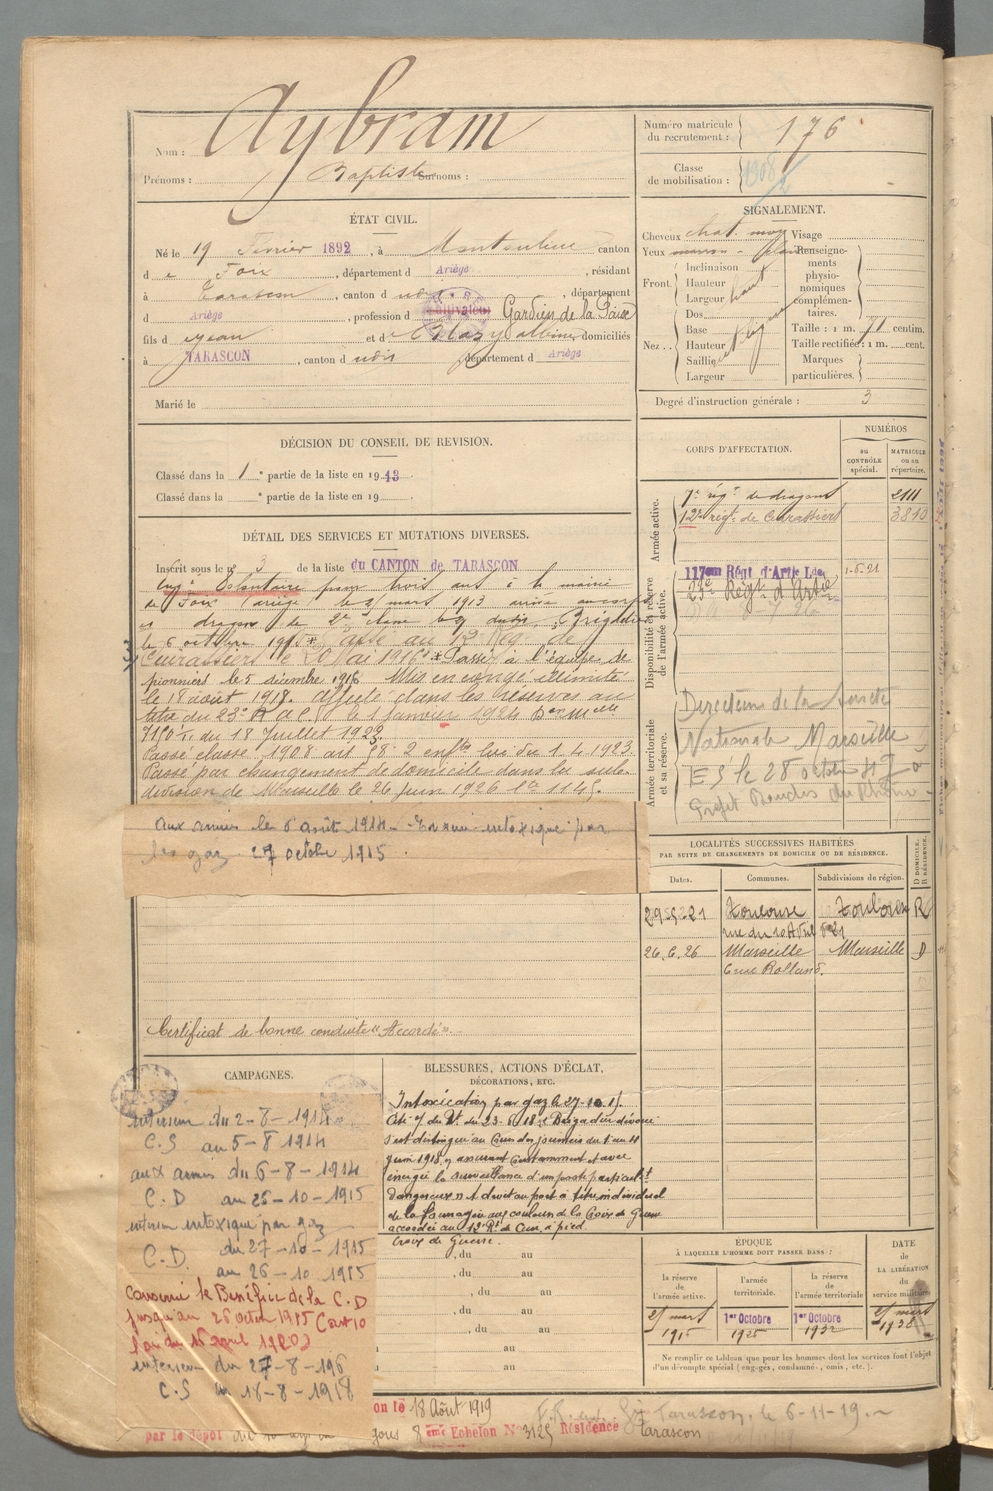 Nom : Aybram
Prénoms : Baptiste Surnoms :
Numéro matricule du recrutement : 176
Classe de mobilisation : 1908/2
ÉTAT CIVIL.
Né le 19 Février 1892, à canton
de Foix, département d Ariège, résidant
à Tarascon, canton d udit, département
d Ariège, profession d cultivateur Gardien de la Paix
fils d Jean et d domiciliés
à TARASCON, canton d udit département d Ariège
Marié le
SIGNALEMENT.
Cheveux chat. moy Visage
Yeux marron
Renseignements physionomiques complémentaires.
Front. Inclinaison
Hauteur
Largeur haut
Nez .. Dos
Base
Hauteur
Saillie
Largeur
Taille : 1 m. 71 centim.
Taille rectifiée : 1 m. cent.
Marques particulières.
Degré d'instruction générale : 3
DÉCISION DU CONSEIL DE REVISION.
Classé dans la 1e partie de la liste en 1913.
Classé dans la e partie de la liste en 19
DÉTAIL DES SERVICES ET MUTATIONS DIVERSES.
Inscrit sous le no 3 de la liste du CANTON de TARASCON
Engé Volontaire pour trois ans à la mairie
de Foix (Ariège) le 2 mars 1913 arrivé au corps
et dragon de 2e classe le dudit. Brigadier
le 6 octobre 1915 * Passé au 12e Rég. de
Cuirassiers le 20 Mai 1916 * Passé à l'équipe de
pionniers le 5 décembre 1916. Mis en congé illimité
le 18 août 1918. Affecté dans les réserves au
titre du 23e R.A.C. le 1 janvier 1924 Don Melle
du 18 Juillet 1923.
Passé classe 1908 art 58. 2 enfts loi du 1.4.1923.
Passé par changement de domicile dans la sub-
division de Marseille le 26 Juin 1926
aux armées le 6 août 1914 - Evacué intoxiqué par
les gaz 27 octobre 1915.
Certificat de bonne conduite "Accordé".
CORPS D'AFFECTATION.
NUMÉROS
au CONTRÔLE spécial.
MATRICULE ou au répertoire.
Armée active.
7e régt de dragons 2111
12e régt de Cuirassiers 3810
Disponibilité et réserve de l'armée active.
117ème Régt d'Artie Lde 1-6.21
23e Régt d'Artie
Armée territoriale et sa réserve.
Direction de la Sureté
Nationale Marseille
Préfet Bouches du Rhône
LOCALITÉS SUCCESSIVES HABITÉES
PAR SUITE DE CHANGEMENTS DE DOMICILE OU DE RÉSIDENCE.
Dates. Communes. Subdivisions de région. D DOMICILE. R RÉSIDENCE.
Toulouse Toulouse R
rue du 10 Avril
26.6.26 Marseille Marseille D
CAMPAGNES.
intérieur du 2-8-1914
C.S au 5-8 1914
aux armées du 6-8-1914
C.D au 26-10-1915
intérieur intoxiqué par gaz
C.D. du 27-10-1915
au 26-10 1915
Conservé le Bénéfice de la C.D
jusqu'au 26 octobre 1915 (art 10
loi du 15 avril 1920)
intérieur du 27-8-196
C.S au 18-8-1918
BLESSURES, ACTIONS D'ÉCLAT,
DÉCORATIONS, ETC.
Intoxication par gaz le 27-10.15.
Cité O. du Rt du 23.6.18 "Brigadier dévoué
s'est distingué au cours des journées du 1 au 11
juin 1918 en assurant constamment et avec
énergie la surveillance d'un poste particulièrt
dangereux" A droit au port à titre individuel
de la fourragère aux couleurs de la Croix de Guerre
accordée au 12e Rt de Cuir. à pied.
Croix de Guerre.
, du au
, du au
, du au
, du au
, du au
au
au
ÉPOQUE
À LAQUELLE L'HOMME DOIT PASSER DANS :
la réserve de l'armée active.
l'armée territoriale.
la réserve de l'armée territoriale
DATE de LA LIBÉRATION du service militaire.
21 mars 1915
1er Octobre 1925
1er Octobre 1932
21 mars 1938
Ne remplir ce tableau que pour les hommes dont les services font l'objet
d'un décompte spécial (engagés, condamnés, omis, etc.).
18 Août 1919
Tarascon, le 6-11-19.
par le dépôt
8ème Echelon No 3125 Résidence Tarascon